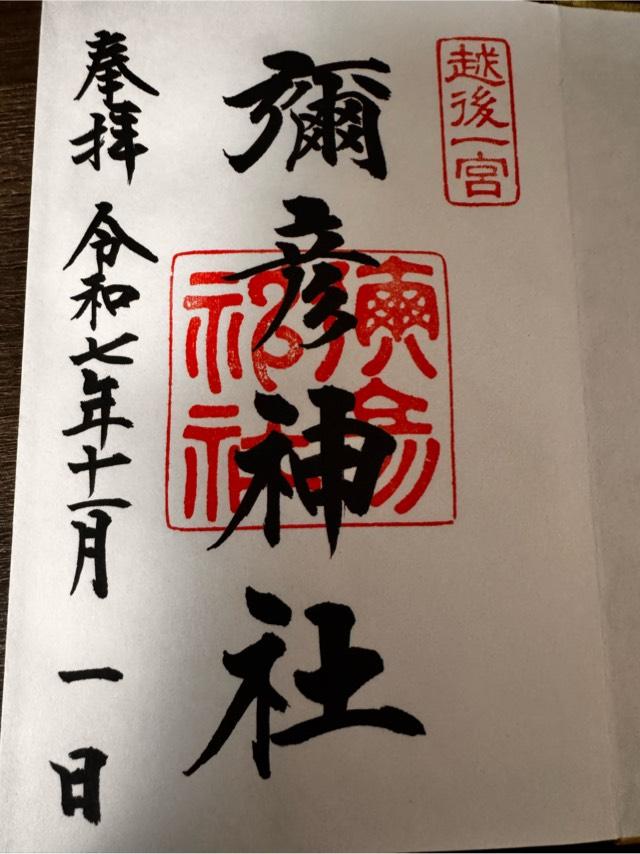 越後一宮
彌彦神社
彌彦神社
奉拝 令和七年十一月 一日